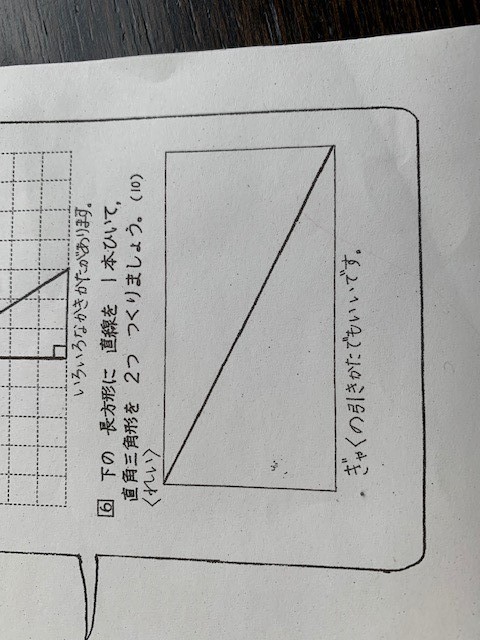 いろいろなかきかたがあります。
6 下の 長方形に 直線を 1本ひいて,
直角三角形を 2つ つくりましょう。(10)
〈れい〉
ぎゃくの引きかたでもいいです。